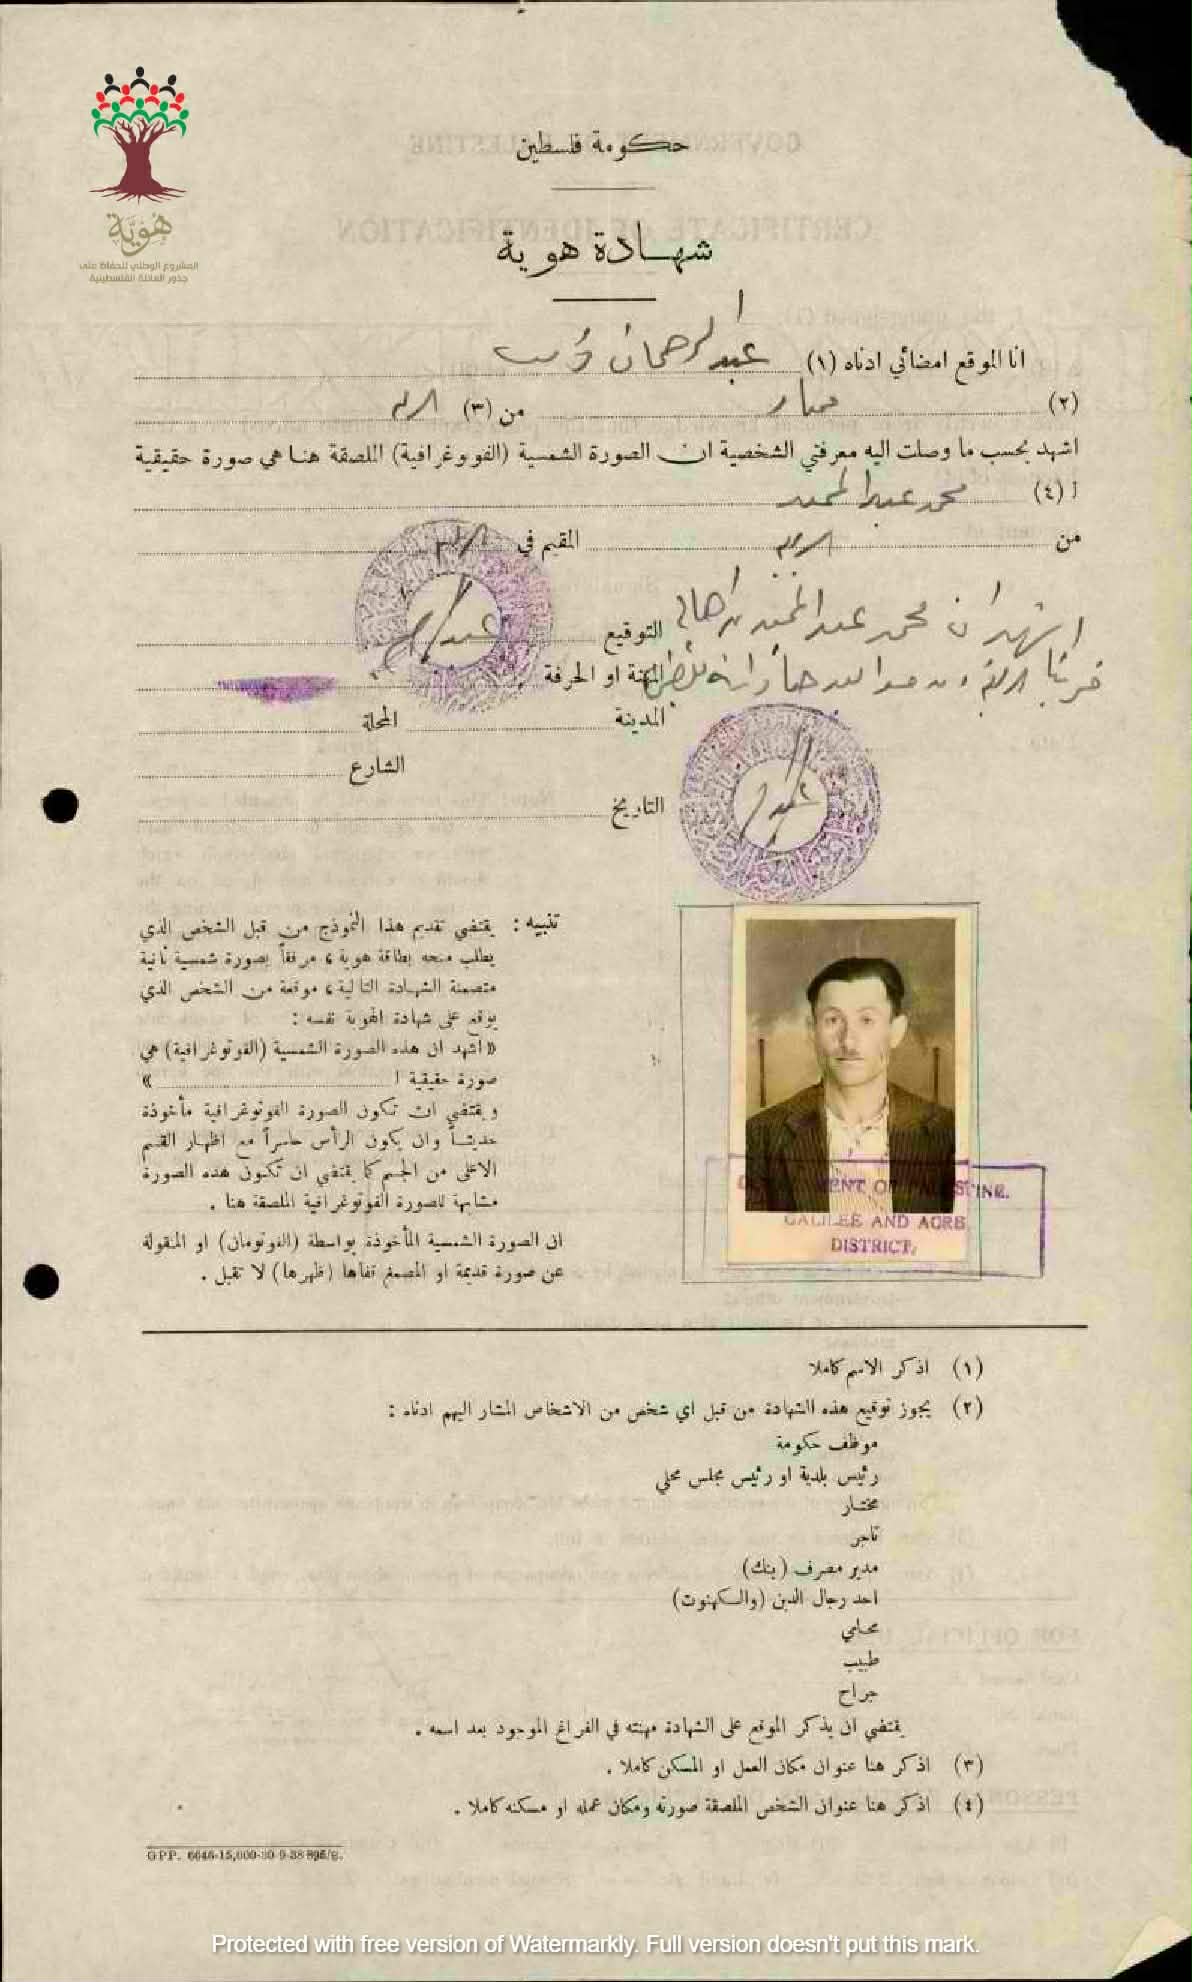 هُوِيَّة
المشروع الوطني للحفاظ على
جذور العائلة الفلسطينية
حكومة فلسطين
شهادة هوية
انا الموقع امضائي ادناه (١) عبد الرحمان
(٢) مختار من (٣)
اشهد بحسب ما وصلت اليه معرفتي الشخصية ان الصورة الشمسية (الفووغرافية) الملصقة هنا هي صورة حقيقية
ا (٤) محمد عبد
من المقيم في
اشهد ان محمد عبد من اهالي
التوقيع
المهنة او الحرفة
المدينة المحلة
الشارع
التاريخ
تنبيه : يقتضي تقديم هذا النموذج من قبل الشخص الذي
يطلب منحه بطاقة هوية ، مرفقاً بصورة شمسية ثانية
متضمنة الشهادة التالية ، موقعة من الشخص الذي
يوقع على شهادة الهوية نفسه :
« اشهد ان هذه الصورة الشمسية (الفوتوغرافية) هي
صورة حقيقية ا »
ويقتضي ان تكون الصورة الفوتوغرافية مأخوذة
حديثاً وان يكون الرأس حاسراً مع اظهار القسم
الاعلى من الجسم كما يقتضي ان تكون هذه الصورة
مشابهة للصورة الفوتوغرافية الملصقة هنا .
ان الصورة الشمسية المأخوذة بواسطة (الفوتومان) او المنقولة
عن صورة قديمة او المصمغ قفاها (ظهرها) لا تقبل .
GALILEE AND ACRE
DISTRICT.
(١) اذكر الاسم كاملا
(٢) يجوز توقيع هذه الشهادة من قبل اي شخص من الاشخاص المشار اليهم ادناه :
موظف حكومة
رئيس بلدية او رئيس مجلس محلي
مختار
تاجر
مدير مصرف (بنك)
احد رجال الدين (والكهنوت)
محامي
طبيب
جراح
يقتضي ان يذكر الموقع على الشهادة مهنته في الفراغ الموجود بعد اسمه .
(٣) اذكر هنا عنوان مكان العمل او المسكن كاملا .
(٤) اذكر هنا عنوان الشخص الملصقة صورته ومكان عمله او مسكنه كاملا .
GPP. 6646-15,000-30-9-38
Protected with free version of Watermarkly. Full version doesn't put this mark.